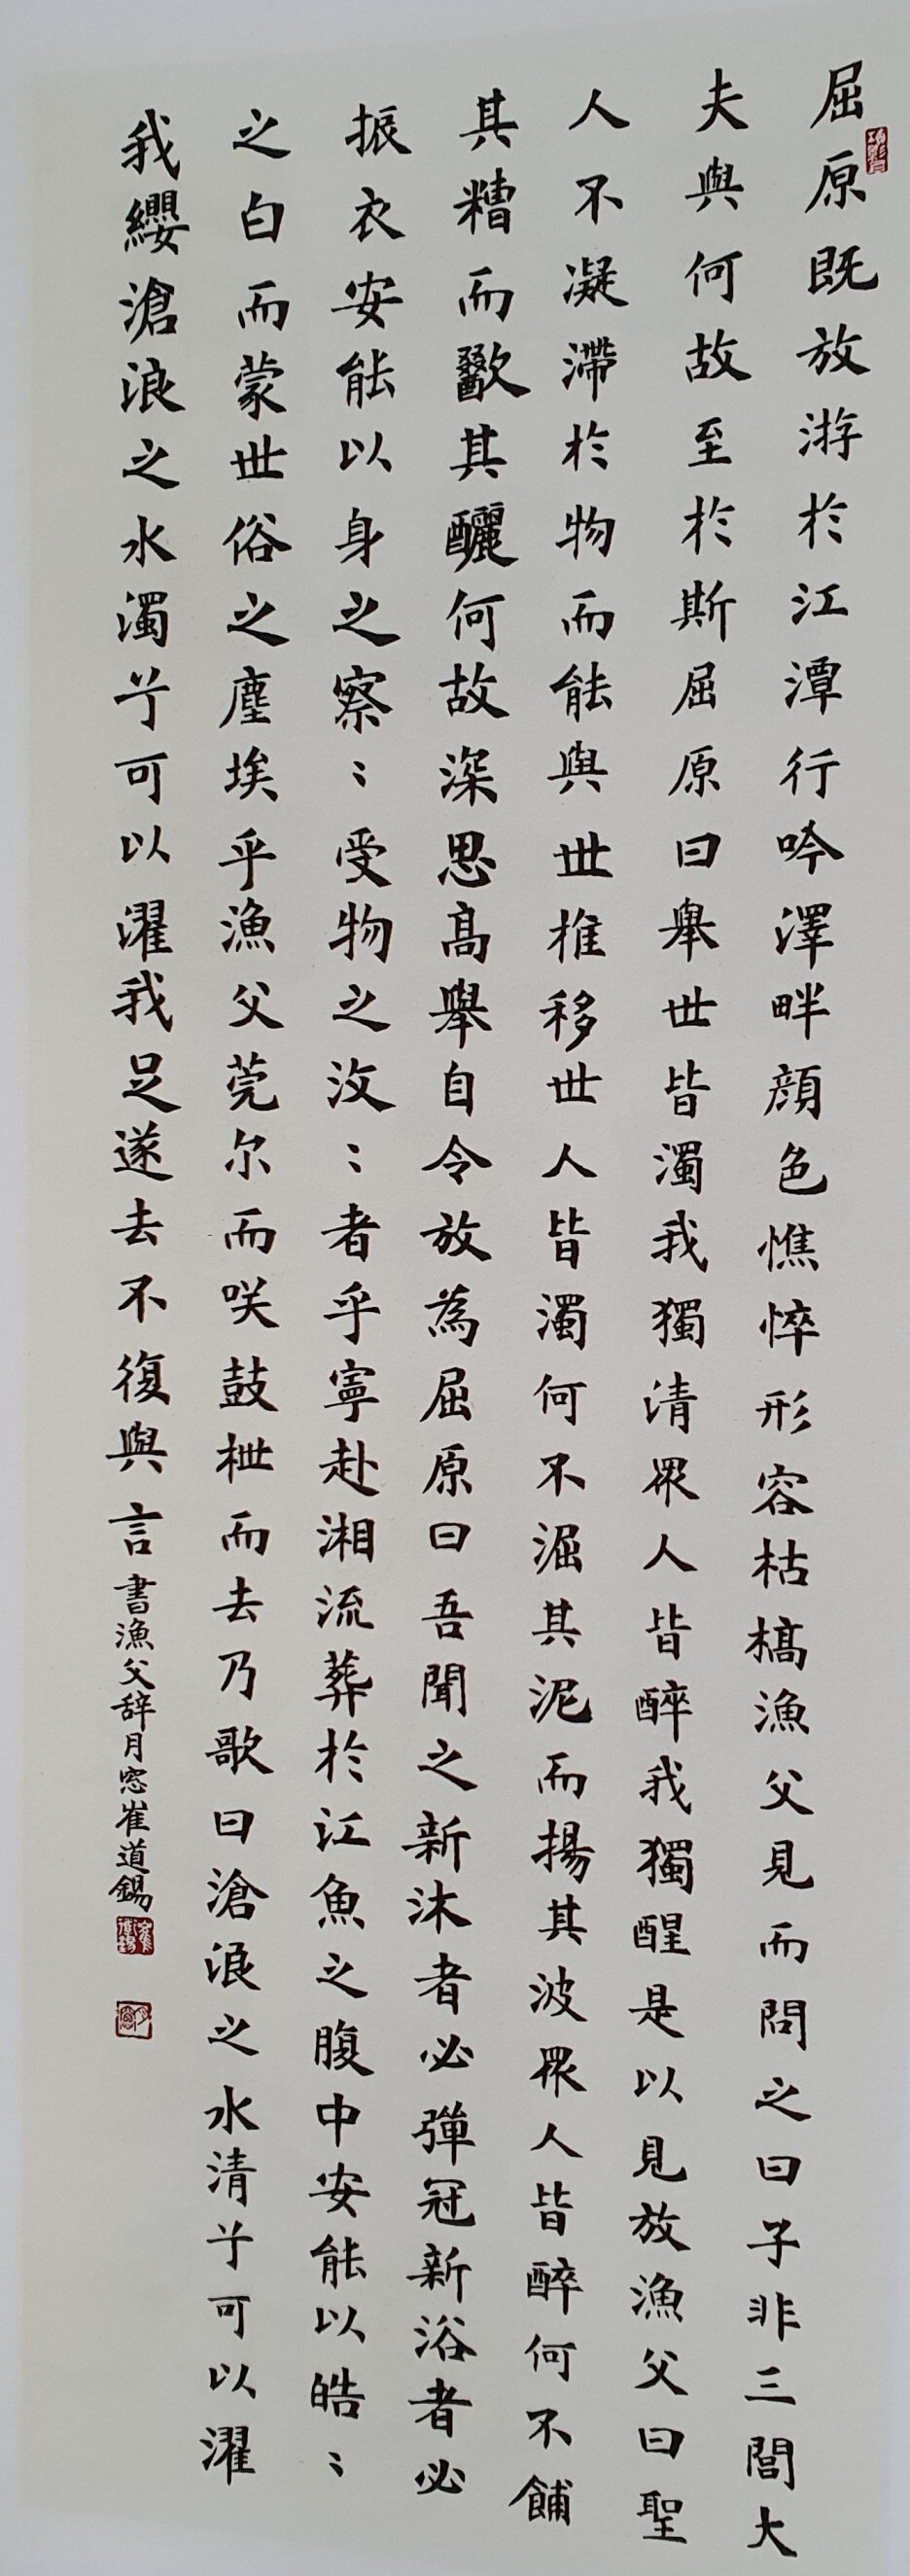 屈原既放游於江潭行吟澤畔顔色憔悴形容枯槁漁父見而問之曰子非三閭大
夫與何故至於斯屈原曰舉世皆濁我獨清眾人皆醉我獨醒是以見放漁父曰聖
人不凝滯於物而能與世推移世人皆濁何不淈其泥而揚其波眾人皆醉何不餔
其糟而歠其釃何故深思高舉自令放為屈原曰吾聞之新沐者必彈冠新浴者必
振衣安能以身之察〻受物之汶〻者乎寧赴湘流葬於江魚之腹中安能以皓〻
之白而蒙世俗之塵埃乎漁父莞尔而咲鼓枻而去乃歌曰滄浪之水清兮可以濯
我纓滄浪之水濁兮可以濯我足遂去不復與言
書漁父辞月窓崔道錫